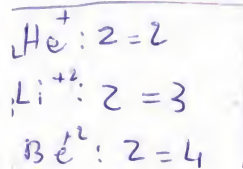 He⁺: Z=2
Li⁺²: Z=3
Be⁺²: Z=4